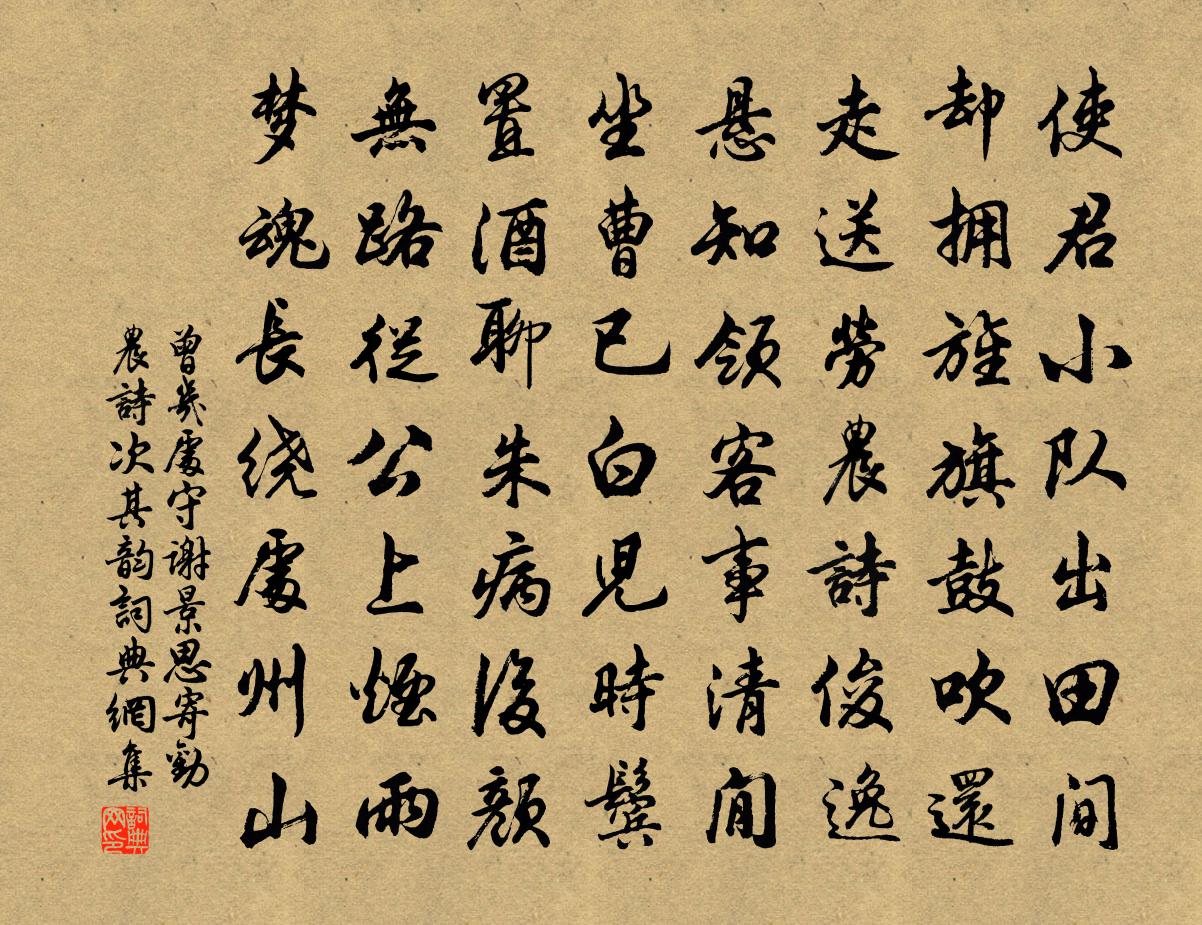 使君小队出田间
却拥旌旗鼓吹還
走送勞農詩俊逸
悬知领客事清闲
坐曹已白兒時鬓
置酒聊朱病後颜
無路從公上煙雨
梦魂長绕處州山
曾幾處守谢景思寄勸
農詩次其韵詞典網集
詞典网印